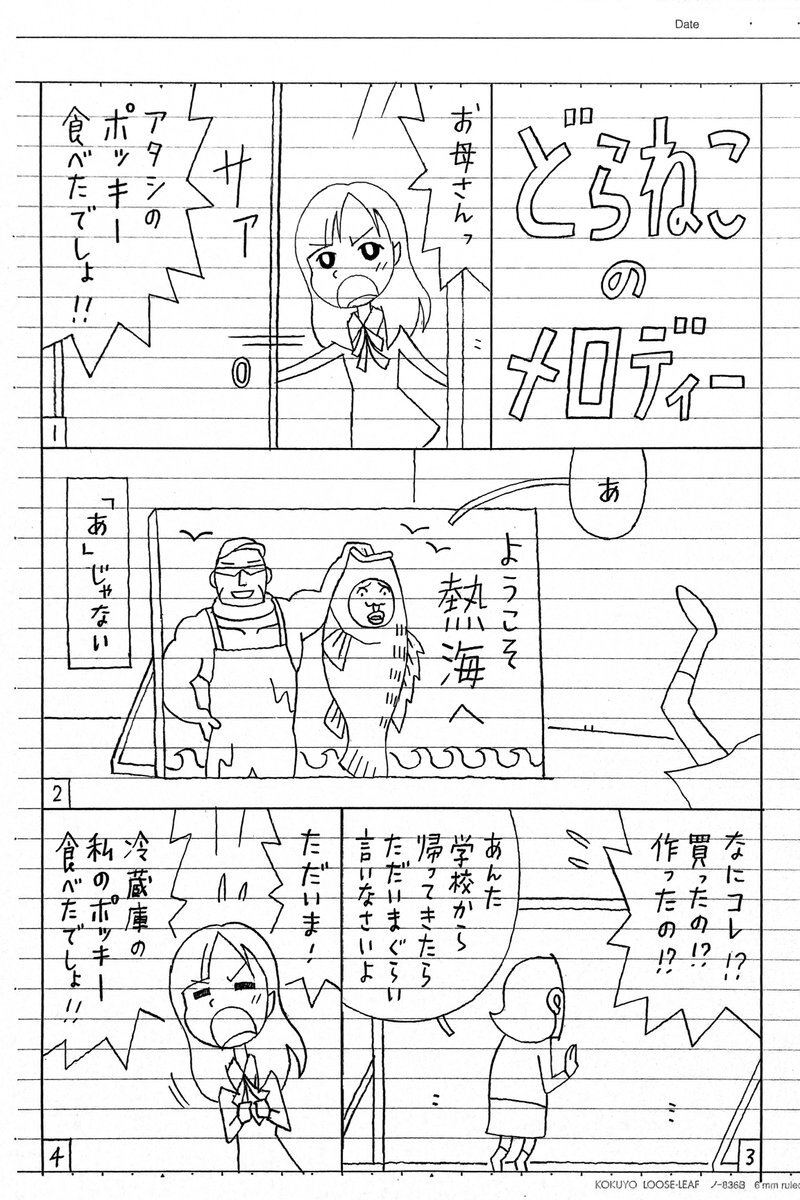 Date
どらねこ
の
メロディー
お母さんっ
サァー
アタシの
ポッキー
食べたでしょ!!
1
あ
ようこそ
熱海へ
「あ」じゃない
2
なにコレ!?
買ったの!?
作ったの!?
あんた
学校から
帰ってきたら
ただいまぐらい
言いなさいよ
3
ただいま!
冷蔵庫の
私のポッキー
食べたでしょ!!
4
KOKUYO LOOSE-LEAF ノ-836B 6 mm ruled